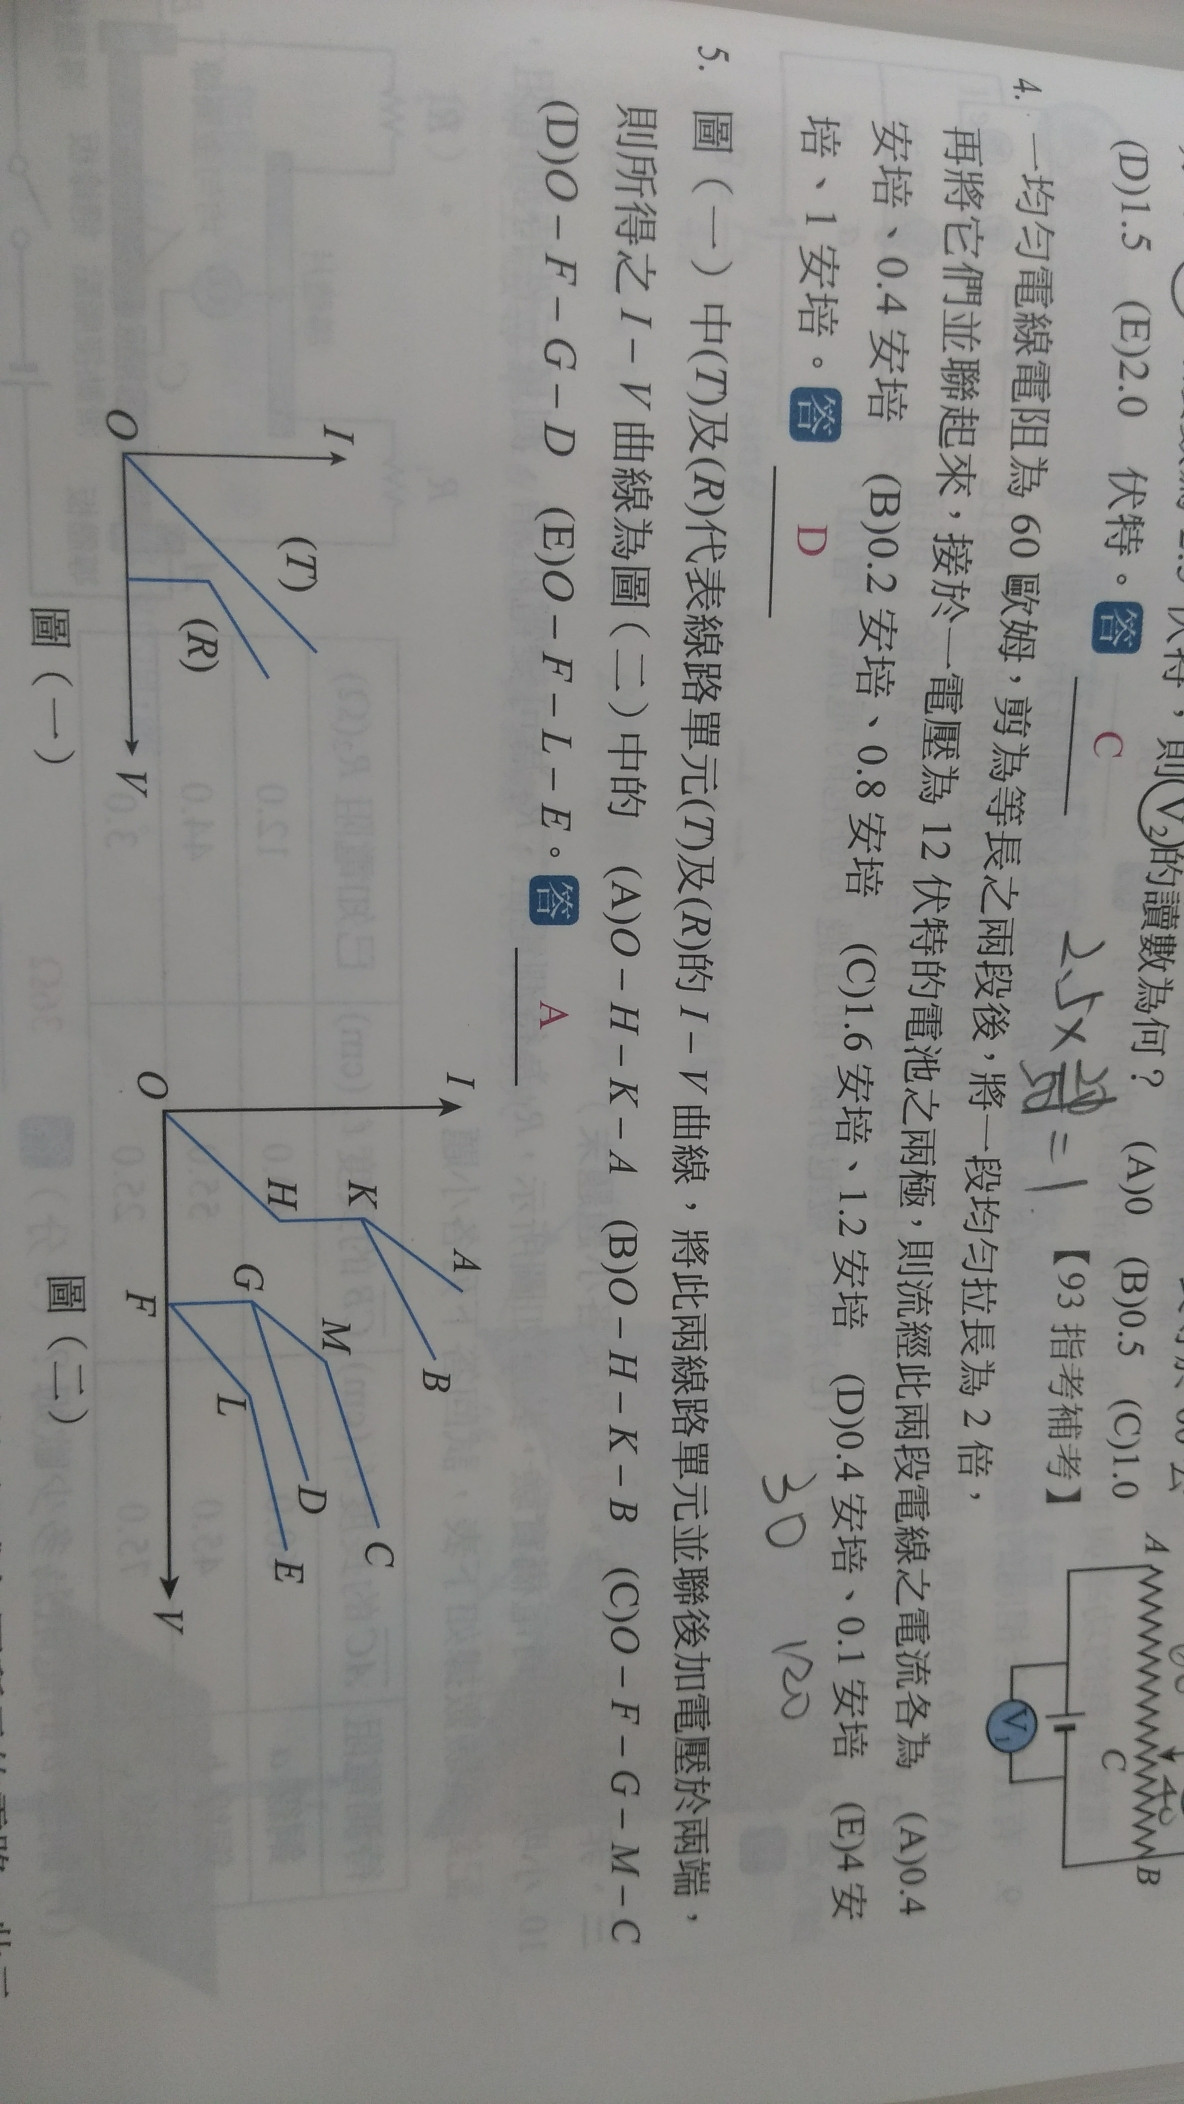 (D)1.5 (E)2.0 伏特。答 C
的讀數為何？ (A)0 (B)0.5 (C)1.0
【93 指考補考】
A
C
B
V₁
4. 一均勻電線電阻為 60 歐姆，剪為等長之兩段後，將一段均勻拉長為 2 倍，
再將它們並聯起來，接於一電壓為 12 伏特的電池之兩極，則流經此兩段電線之電流各為 (A)0.4
安培、0.4 安培 (B)0.2 安培、0.8 安培 (C)1.6 安培、1.2 安培 (D)0.4 安培、0.1 安培 (E)4 安
培、1 安培。答 D
30 120
5. 圖（一）中(T)及(R)代表線路單元(T)及(R)的 I－V 曲線，將此兩線路單元並聯後加電壓於兩端，
則所得之 I－V 曲線為圖（二）中的 (A)O－H－K－A (B)O－H－K－B (C)O－F－G－M－C
(D)O－F－G－D (E)O－F－L－E。答 A
I
(T)
(R)
O
V
圖（一）
I
A
K
B
H
M
C
G
D
L
E
O
F
V
圖（二）